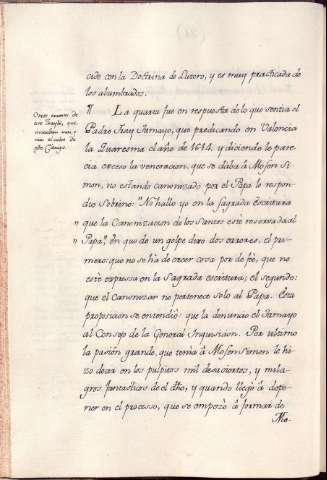 cide con la Doctrina de Lutero, y es muy practicada de
los alumbrados.
¶ La quarta fue en respuesta de lo que sentia el
Padre Fray Sarnayo, que predicando en Valencia
la Quaresma el año de 1614. y diciendo le pare
cia exceso la veneracion, que se daba à Mosen Si
mon, no estando canonizado por el Papa le respon
dio Sobrino: "No hallo yo en la sagrada escritura
" que la Canonizacion de los Santos esté reservada al
" Papa", en que de un golpe dixo dos errores. el pri
mero: que no se hà de creer cosa por de feè, que no
esté expressa en la Sagrada escritura; el segundo:
que el canonizar no pertenece solo al Papa. Esta
proposicion se entendiò que la denunciò el Sarnayo
al Consejo de la General Inquisicion. Por ultimo
la pasion grande, que tenia à Mosen Simon le hi
zo decir en los pulpitos mil desaciertos, y mila
gros fantasticos de el dho, y quando llegò à depo
ner en el proceso, que se empezò à formar de
Mo-
Otros errores de
este Frayle, que